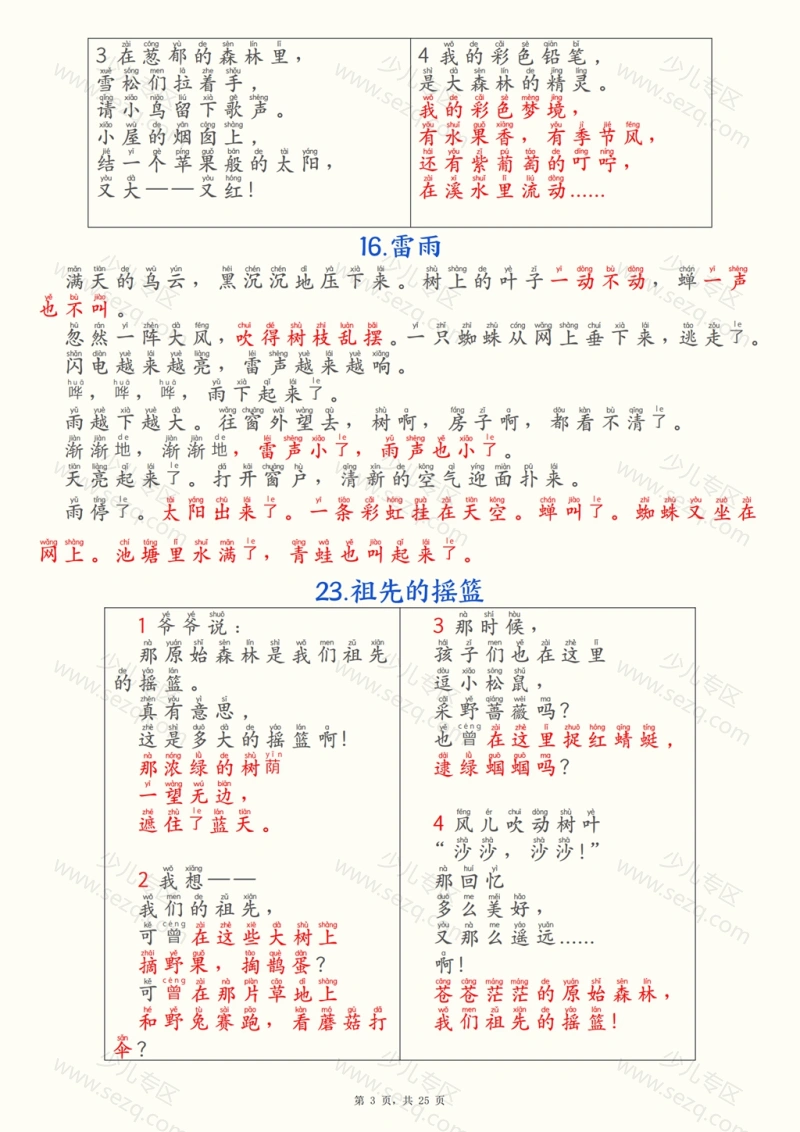 3 在葱郁的森林里，
雪松们拉着手，
请小鸟留下歌声。
小屋的烟囱上，
结一个苹果般的太阳，
又大——又红！
4 我的彩色铅笔，
是大森林的精灵。
我的彩色梦境，
有水果香，有季节风，
还有紫葡萄的叮咛，
在溪水里流动……
16.雷雨
满天的乌云，黑沉沉地压下来。树上的叶子一动不动，蝉一声
也不叫。
忽然一阵大风，吹得树枝乱摆。一只蜘蛛从网上垂下来，逃走了。
闪电越来越亮，雷声越来越响。
哗，哗，哗，雨下起来了。
雨越下越大。往窗外望去，树啊，房子啊，都看不清了。
渐渐地，渐渐地，雷声小了，雨声也小了。
天亮起来了。打开窗户，清新的空气迎面扑来。
雨停了。太阳出来了。一条彩虹挂在天空。蝉叫了。蜘蛛又坐在
网上。池塘里水满了，青蛙也叫起来了。
23.祖先的摇篮
1 爷爷说：
那原始森林是我们祖先
的摇篮。
真有意思，
这是多大的摇篮啊！
那浓绿的树荫
一望无边，
遮住了蓝天。
2 我想——
我们的祖先，
可曾在这些大树上
摘野果，掏鹊蛋？
可曾在那片草地上
和野兔赛跑，看蘑菇打
伞？
3 那时候，
孩子们也在这里
逗小松鼠，
采野蔷薇吗？
也曾在这里捉红蜻蜓，
逮绿蝈蝈吗？
4 风儿吹动树叶
“沙沙，沙沙！”
那回忆
多么美好，
又那么遥远……
啊！
苍苍茫茫的原始森林，
我们祖先的摇篮！
第 3 页，共 25 页
少儿专区
www.sezq.com